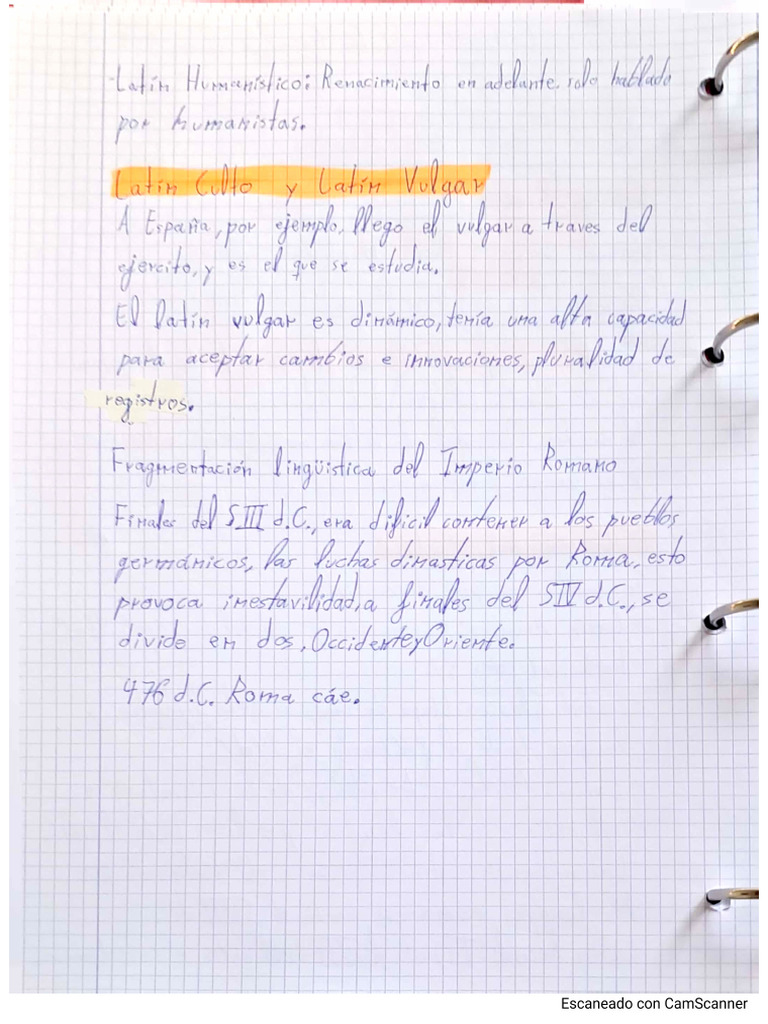 -Latín Humanístico: Renacimiento en adelante. solo hablado
por humanistas.
Latín Culto y Latín Vulgar
A España, por ejemplo, llego el vulgar a traves del
ejercito, y es el que se estudia.
El latín vulgar es dinámico, tenía una alta capacidad
para aceptar cambios e innovaciones, pluralidad de
registros.
Fragmentación lingüistica del Imperio Romano
Finales del S III d.C., era dificil contener a los pueblos
germánicos, las luchas dinasticas por Roma, esto
provoca inestavilidad, a finales del S IV d.C., se
divide en dos, Occidente y Oriente.
476 d.C. Roma cáe.
Escaneado con CamScanner